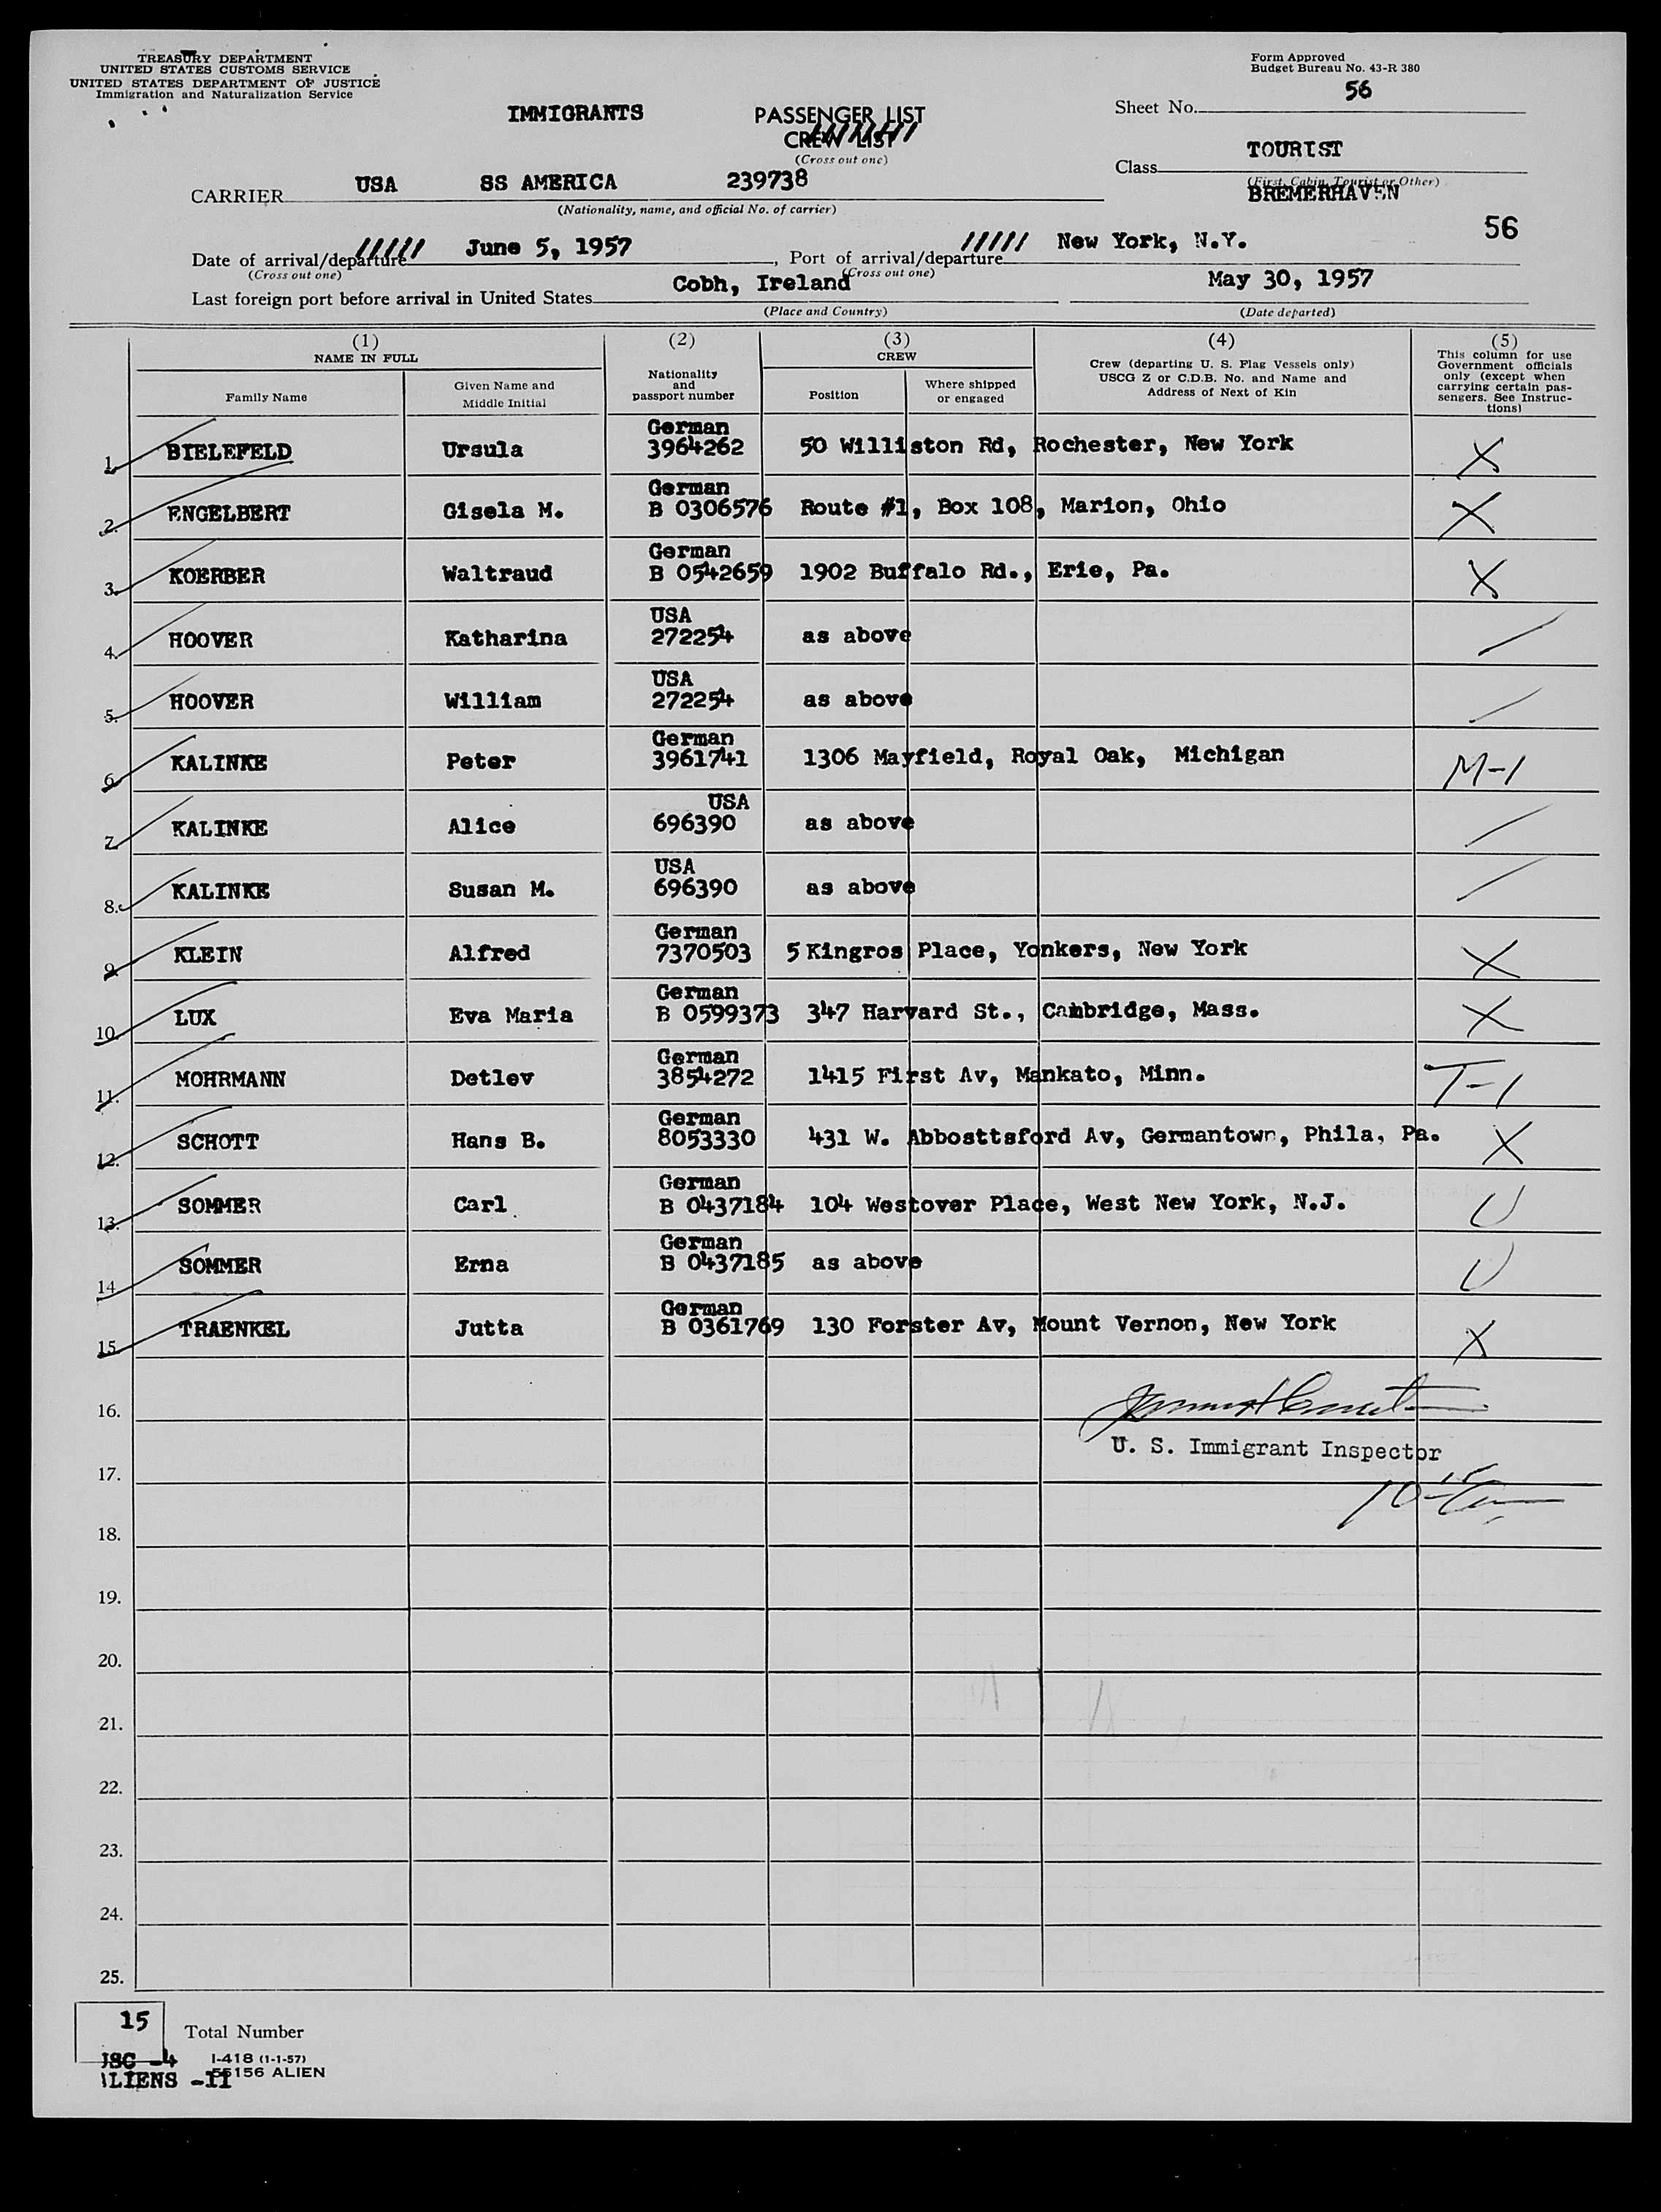 TREASURY DEPARTMENT
UNITED STATES CUSTOMS SERVICE
UNITED STATES DEPARTMENT OF JUSTICE
Immigration and Naturalization Service
Form Approved
Budget Bureau No. 43-R 380
IMMIGRANTS PASSENGER LIST Sheet No. 56
CREW LIST
(Cross out one)
Class TOURIST
(First, Cabin, Tourist or Other)
BREMERHAVEN
CARRIER USA SS AMERICA 239738
(Nationality, name, and official No. of carrier)
56
Date of arrival/departure ///// June 5, 1957, Port of arrival/departure ///// New York, N.Y.
(Cross out one) (Cross out one)
Last foreign port before arrival in United States Cobh, Ireland May 30, 1957
(Place and Country) (Date departed)
(1) (2) (3) (4) (5)
NAME IN FULL
Family Name
Given Name and Middle Initial
Nationality and passport number
CREW
Position
Where shipped or engaged
Crew (departing U. S. Flag Vessels only)
USCG Z or C.D.B. No. and Name and
Address of Next of Kin
This column for use
Government officials
only (except when
carrying certain pas-
sengers. See Instruc-
tions)
1. BIELEFELD Ursula German 3964262 50 Williston Rd, Rochester, New York X
2. ENGELBERT Gisela M. German B 0306576 Route #1, Box 108, Marion, Ohio X
3. KOERBER Waltraud German B 0542659 1902 Buffalo Rd., Erie, Pa. X
4. HOOVER Katharina USA 272254 as above /
5. HOOVER William USA 272254 as above /
6. KALINKE Peter German 3961741 1306 Mayfield, Royal Oak, Michigan M-1
7. KALINKE Alice USA 696390 as above /
8. KALINKE Susan M. USA 696390 as above /
9. KLEIN Alfred German 7370503 5 Kingros Place, Yonkers, New York X
10. LUX Eva Maria German B 0599373 347 Harvard St., Cambridge, Mass. X
11. MOHRMANN Detlev German 3854272 1415 First Av, Mankato, Minn. T-1
12. SCHOTT Hans B. German 8053330 431 W. Abbosttsford Av, Germantown, Phila, Pa. X
13. SOMMER Carl German B 0437184 104 Westover Place, West New York, N.J. U
14. SOMMER Erna German B 0437185 as above U
15. TRAENKEL Jutta German B 0361769 130 Forster Av, Mount Vernon, New York X
16.
U. S. Immigrant Inspector
17.
18.
19.
20.
21.
22.
23.
24.
25.
15 Total Number
I-418 (1-1-57)
USC -4
55156 ALIEN
ALIENS -11